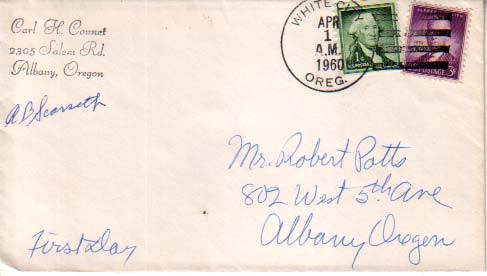 Carl H. Connet
2305 Salem Rd.
Albany, Oregon
WHITE
APR
1
A.M.
1960
OREG.
1¢
U.S. POSTAGE
POSTAGE 3¢
First Day
Mr. Robert Potts
802 West 5th Ave
Albany Oregon